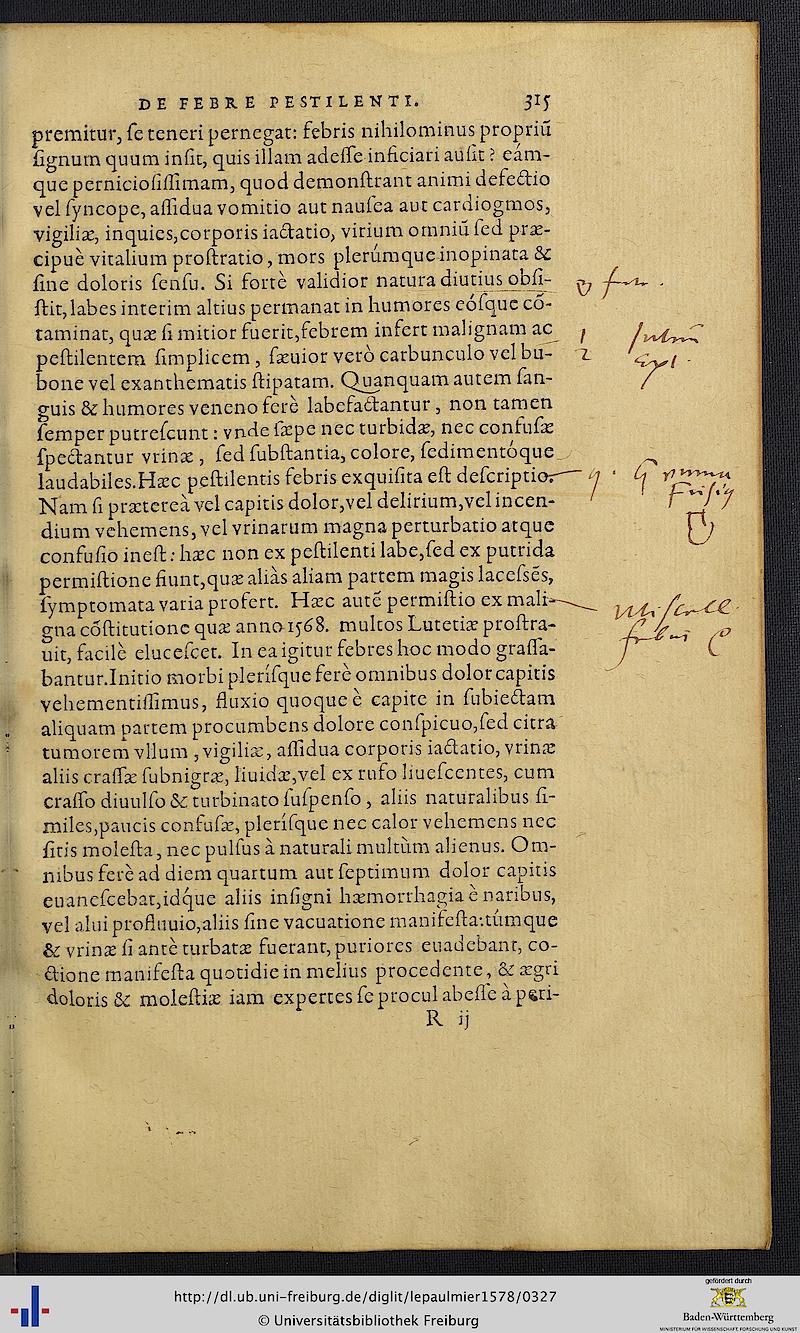 DE FEBRE PESTILENTI. 315
premitur, ſe teneri pernegat: febris nihilominus propriũ
ſignum quum inſit, quis illam adeſſe inficiari auſit? eám-
que pernicioſiſſimam, quod demonſtrant animi defectio
vel ſyncope, aſſidua vomitio aut nauſea aut cardiogmos,
vigiliæ, inquies, corporis iactatio, virium omniũ ſed præ-
cipuè vitalium proſtratio, mors plerúmque inopinata &
ſine doloris ſenſu. Si fortè validior natura diutius obſi-
ſtit, labes interim altius permanat in humores eóſque cõ-
taminat, quæ ſi mitior fuerit, febrem infert malignam ac
peſtilentem ſimplicem, ſæuior verò carbunculo vel bu-
bone vel exanthematis ſtipatam. Quanquam autem ſan-
guis & humores veneno ferè labefactantur, non tamen
ſemper putreſcunt: vnde ſæpe nec turbidæ, nec confuſæ
ſpectantur vrinæ, ſed ſubſtantia, colore, ſedimentóque
laudabiles. Hæc peſtilentis febris exquiſita eſt deſcriptio.
Nam ſi prætereà vel capitis dolor, vel delirium, vel incen-
dium vehemens, vel vrinarum magna perturbatio atque
confuſio ineſt: hæc non ex peſtilenti labe, ſed ex putrida
permiſtione fiunt, quæ aliàs aliam partem magis laceſsẽs,
ſymptomata varia profert. Hæc autẽ permiſtio ex mali-
gna cõſtitutione quæ anno 1568. multos Lutetiæ proſtra-
uit, facilè eluceſcet. In ea igitur febres hoc modo graſſa-
bantur. Initio morbi pleríſque ferè omnibus dolor capitis
vehementiſſimus, fluxio quoque è capite in ſubiectam
aliquam partem procumbens dolore conſpicuo, ſed citra
tumorem vllum, vigiliæ, aſſidua corporis iactatio, vrinæ
aliis craſſæ ſubnigræ, liuidæ, vel ex rufo liueſcentes, cum
craſſo diuulſo & turbinato ſuſpenſo, aliis naturalibus ſi-
miles, paucis confuſæ, pleríſque nec calor vehemens nec
ſitis moleſta, nec pulſus à naturali multùm alienus. Om-
nibus ferè ad diem quartum aut ſeptimum dolor capitis
euaneſcebat, idq́ue aliis inſigni hæmorrhagia è naribus,
vel alui profluuio, aliis ſine vacuatione manifeſta: túmque
& vrinæ ſi antè turbatæ fuerant, puriores euadebant, co-
ctione manifeſta quotidie in melius procedente, & ægri
doloris & moleſtiæ iam expertes ſe procul abeſſe à peri-
R ij
1
2
http://dl.ub.uni-freiburg.de/diglit/lepaulmier1578/0327
© Universitätsbibliothek Freiburg
gefördert durch
Baden-Württemberg
MINISTERIUM FÜR WISSENSCHAFT, FORSCHUNG UND KUNST